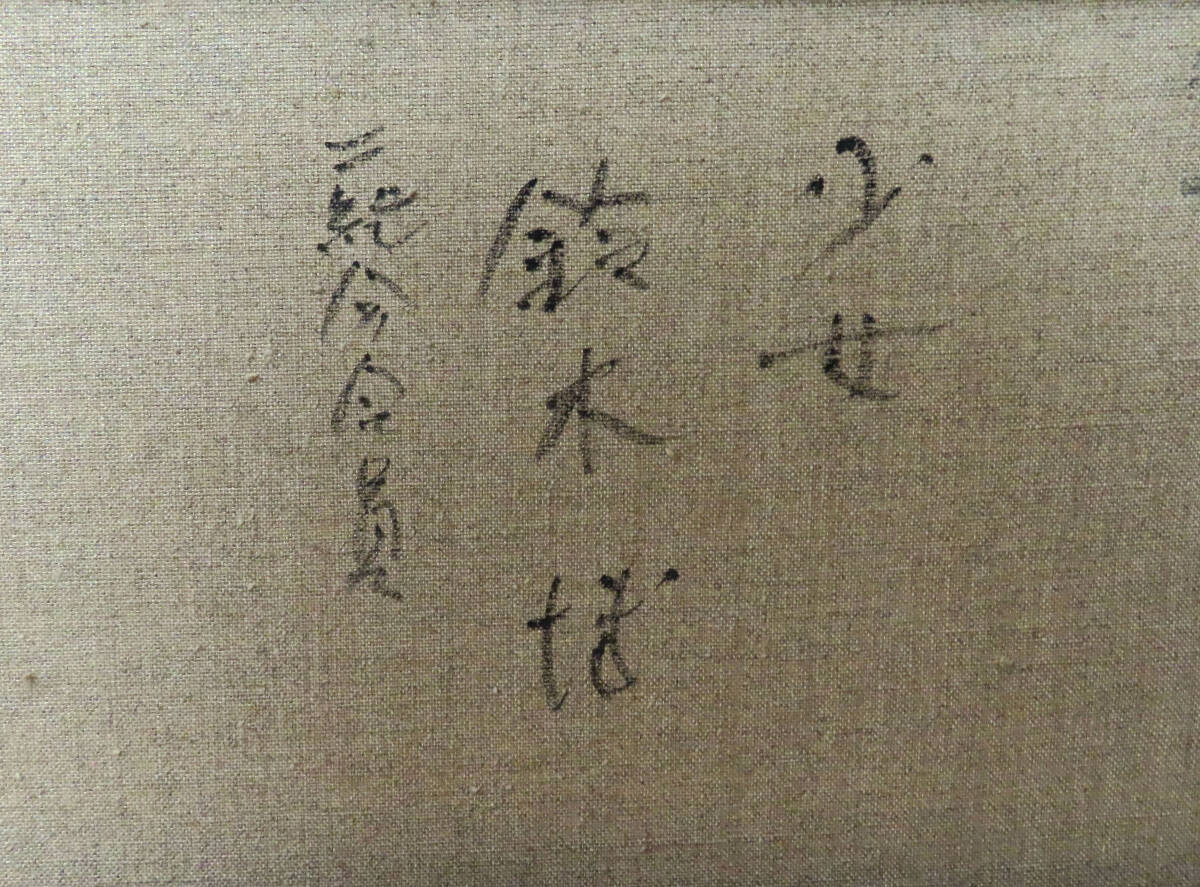 少女
鈴木博
二紀会会員